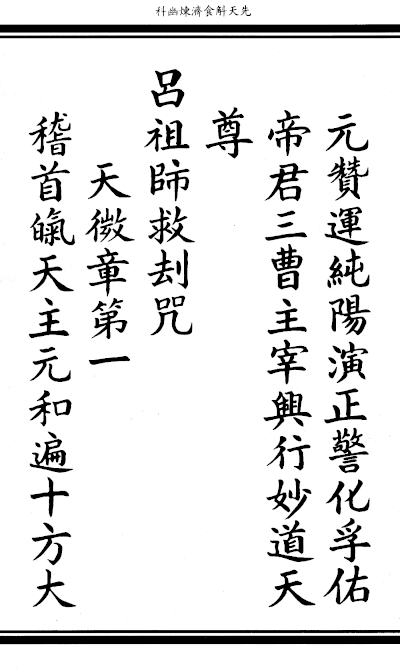 先天斛食濟煉幽科
元贊運純陽演正警化孚佑
帝君三曹主宰興行妙道天
尊
呂祖師救刦咒
天微章第一
稽首皈天主元和遍十方大